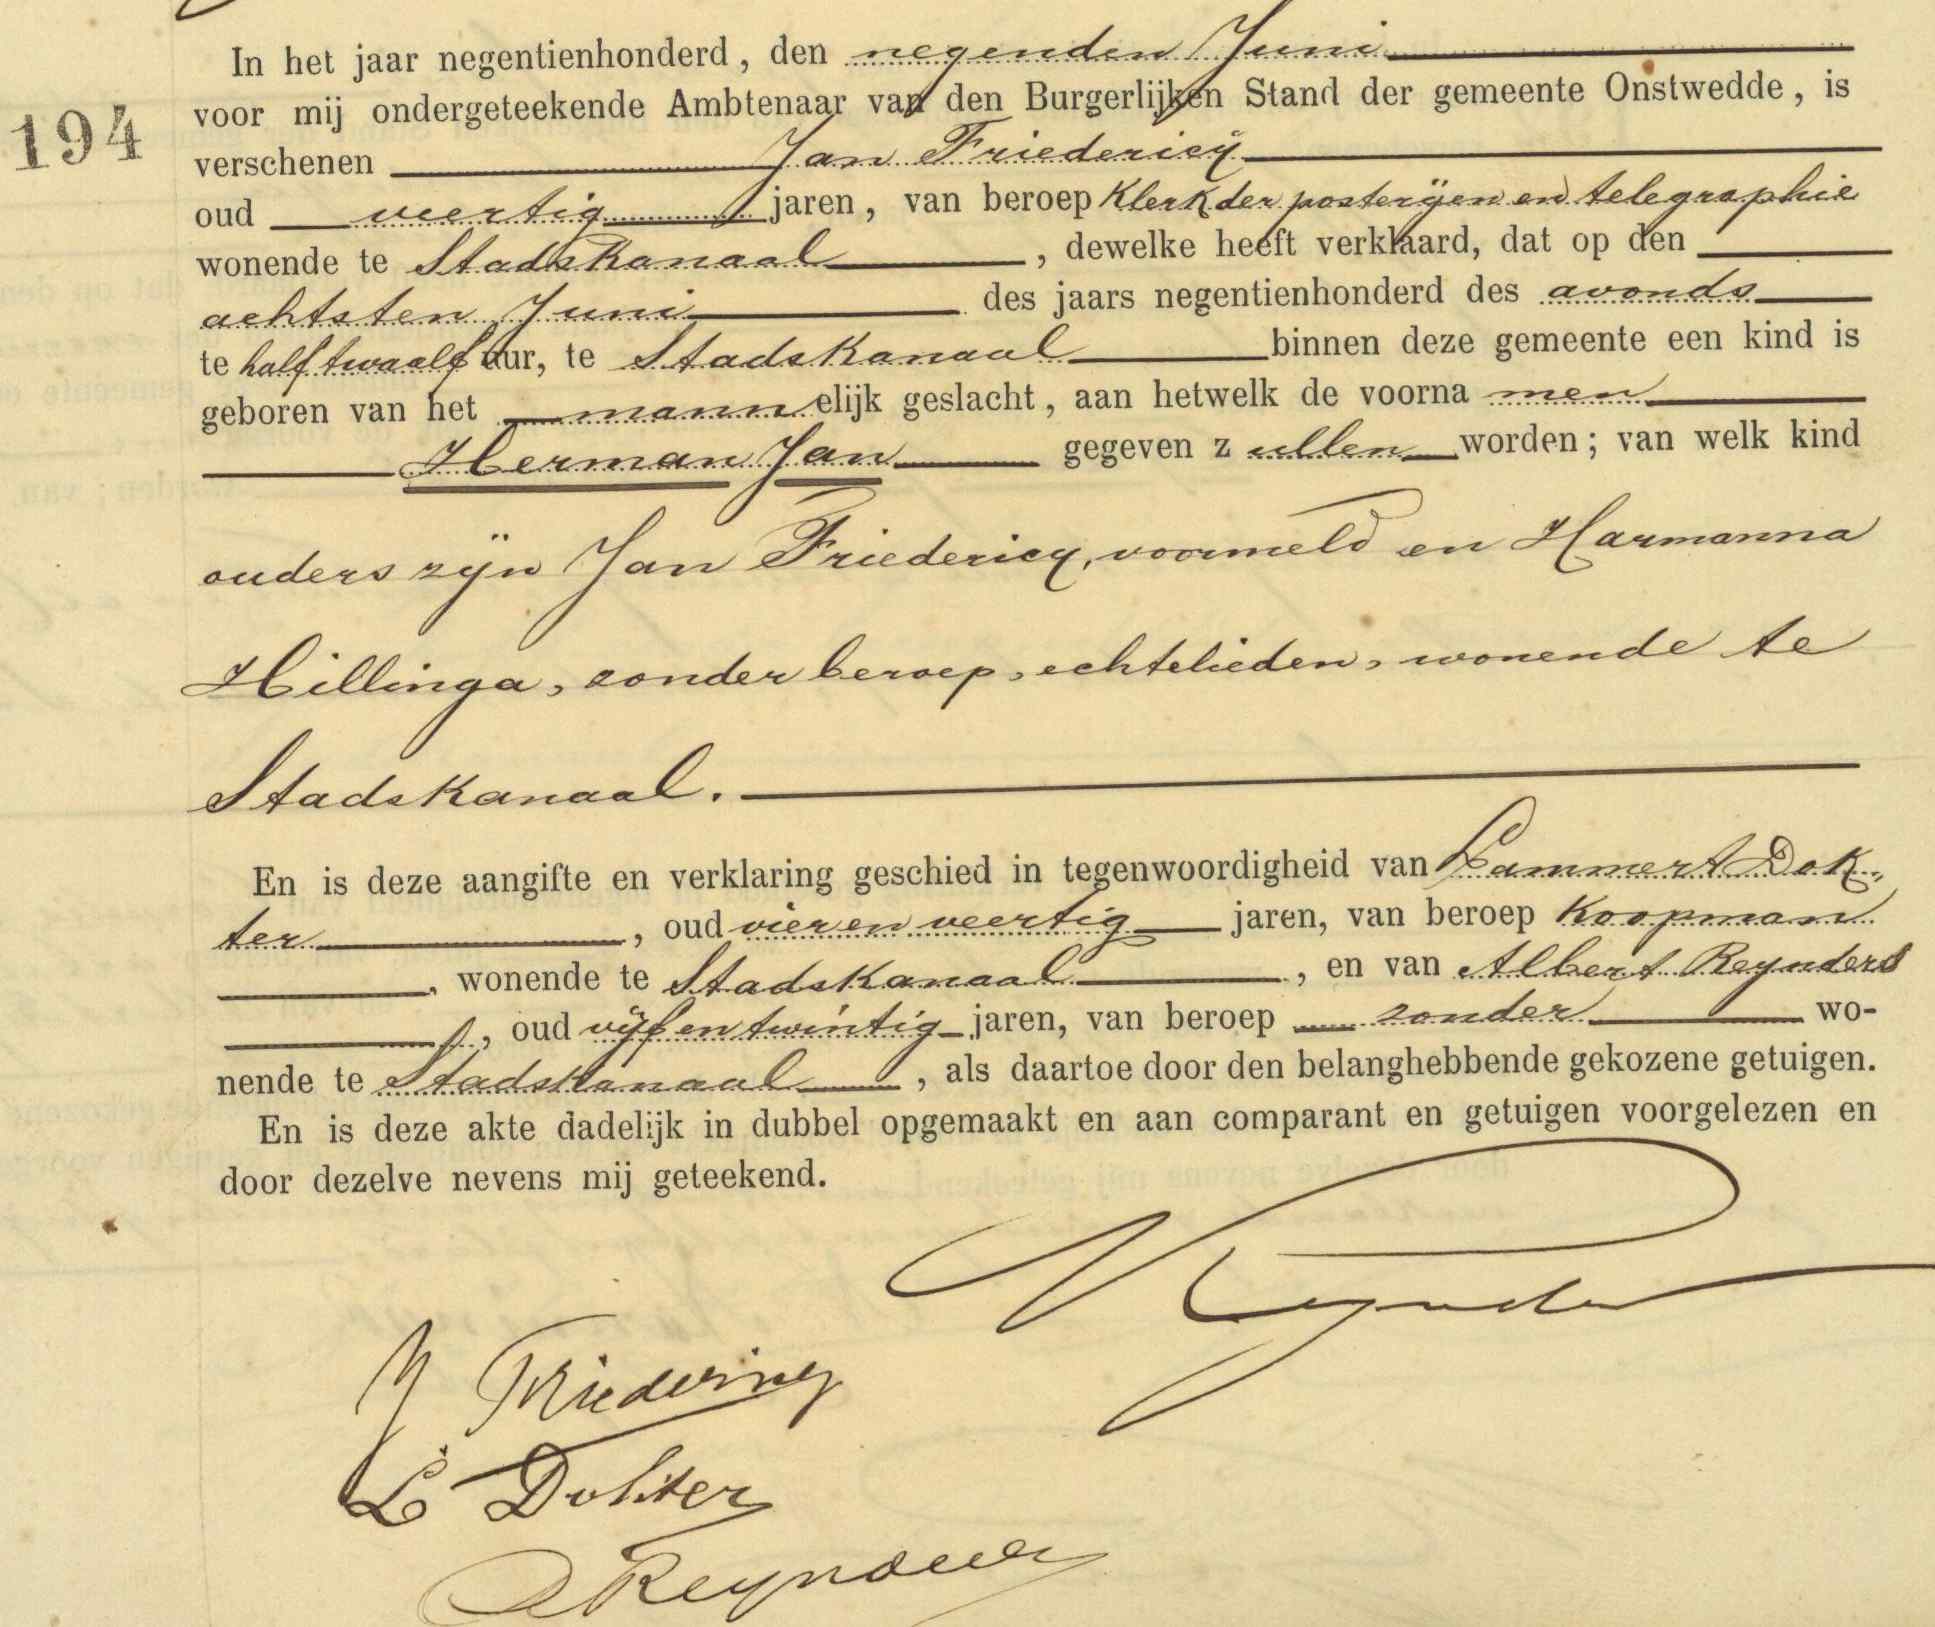 In het jaar negentienhonderd, den negenden Juni
194
voor mij ondergeteekende Ambtenaar van den Burgerlijken Stand der gemeente Onstwedde, is
verschenen Jan Friedericy
oud veertig jaren, van beroep Klerk der posterijen en telegraphie
wonende te Stadskanaal, dewelke heeft verklaard, dat op den
achtsten Juni des jaars negentienhonderd des avonds
te half twaalf uur, te Stadskanaal binnen deze gemeente een kind is
geboren van het mannelijk geslacht, aan hetwelk de voorna men
Herman Jan gegeven z ullen worden; van welk kind
ouders zijn Jan Friedericy, voormeld en Harmanna
Hillinga, zonder beroep, echtelieden, wonende te
Stadskanaal.
En is deze aangifte en verklaring geschied in tegenwoordigheid van Lammert Dok„
ter, oud vier en veertig jaren, van beroep Koopman
, wonende te Stadskanaal, en van Albert Reynders
, oud vijf en twintig jaren, van beroep zonder wo-
nende te Stadskanaal, als daartoe door den belanghebbende gekozene getuigen.
En is deze akte dadelijk in dubbel opgemaakt en aan comparant en getuigen voorgelezen en
door dezelve nevens mij geteekend.
J Friedericy
L Dokter
A Reynders